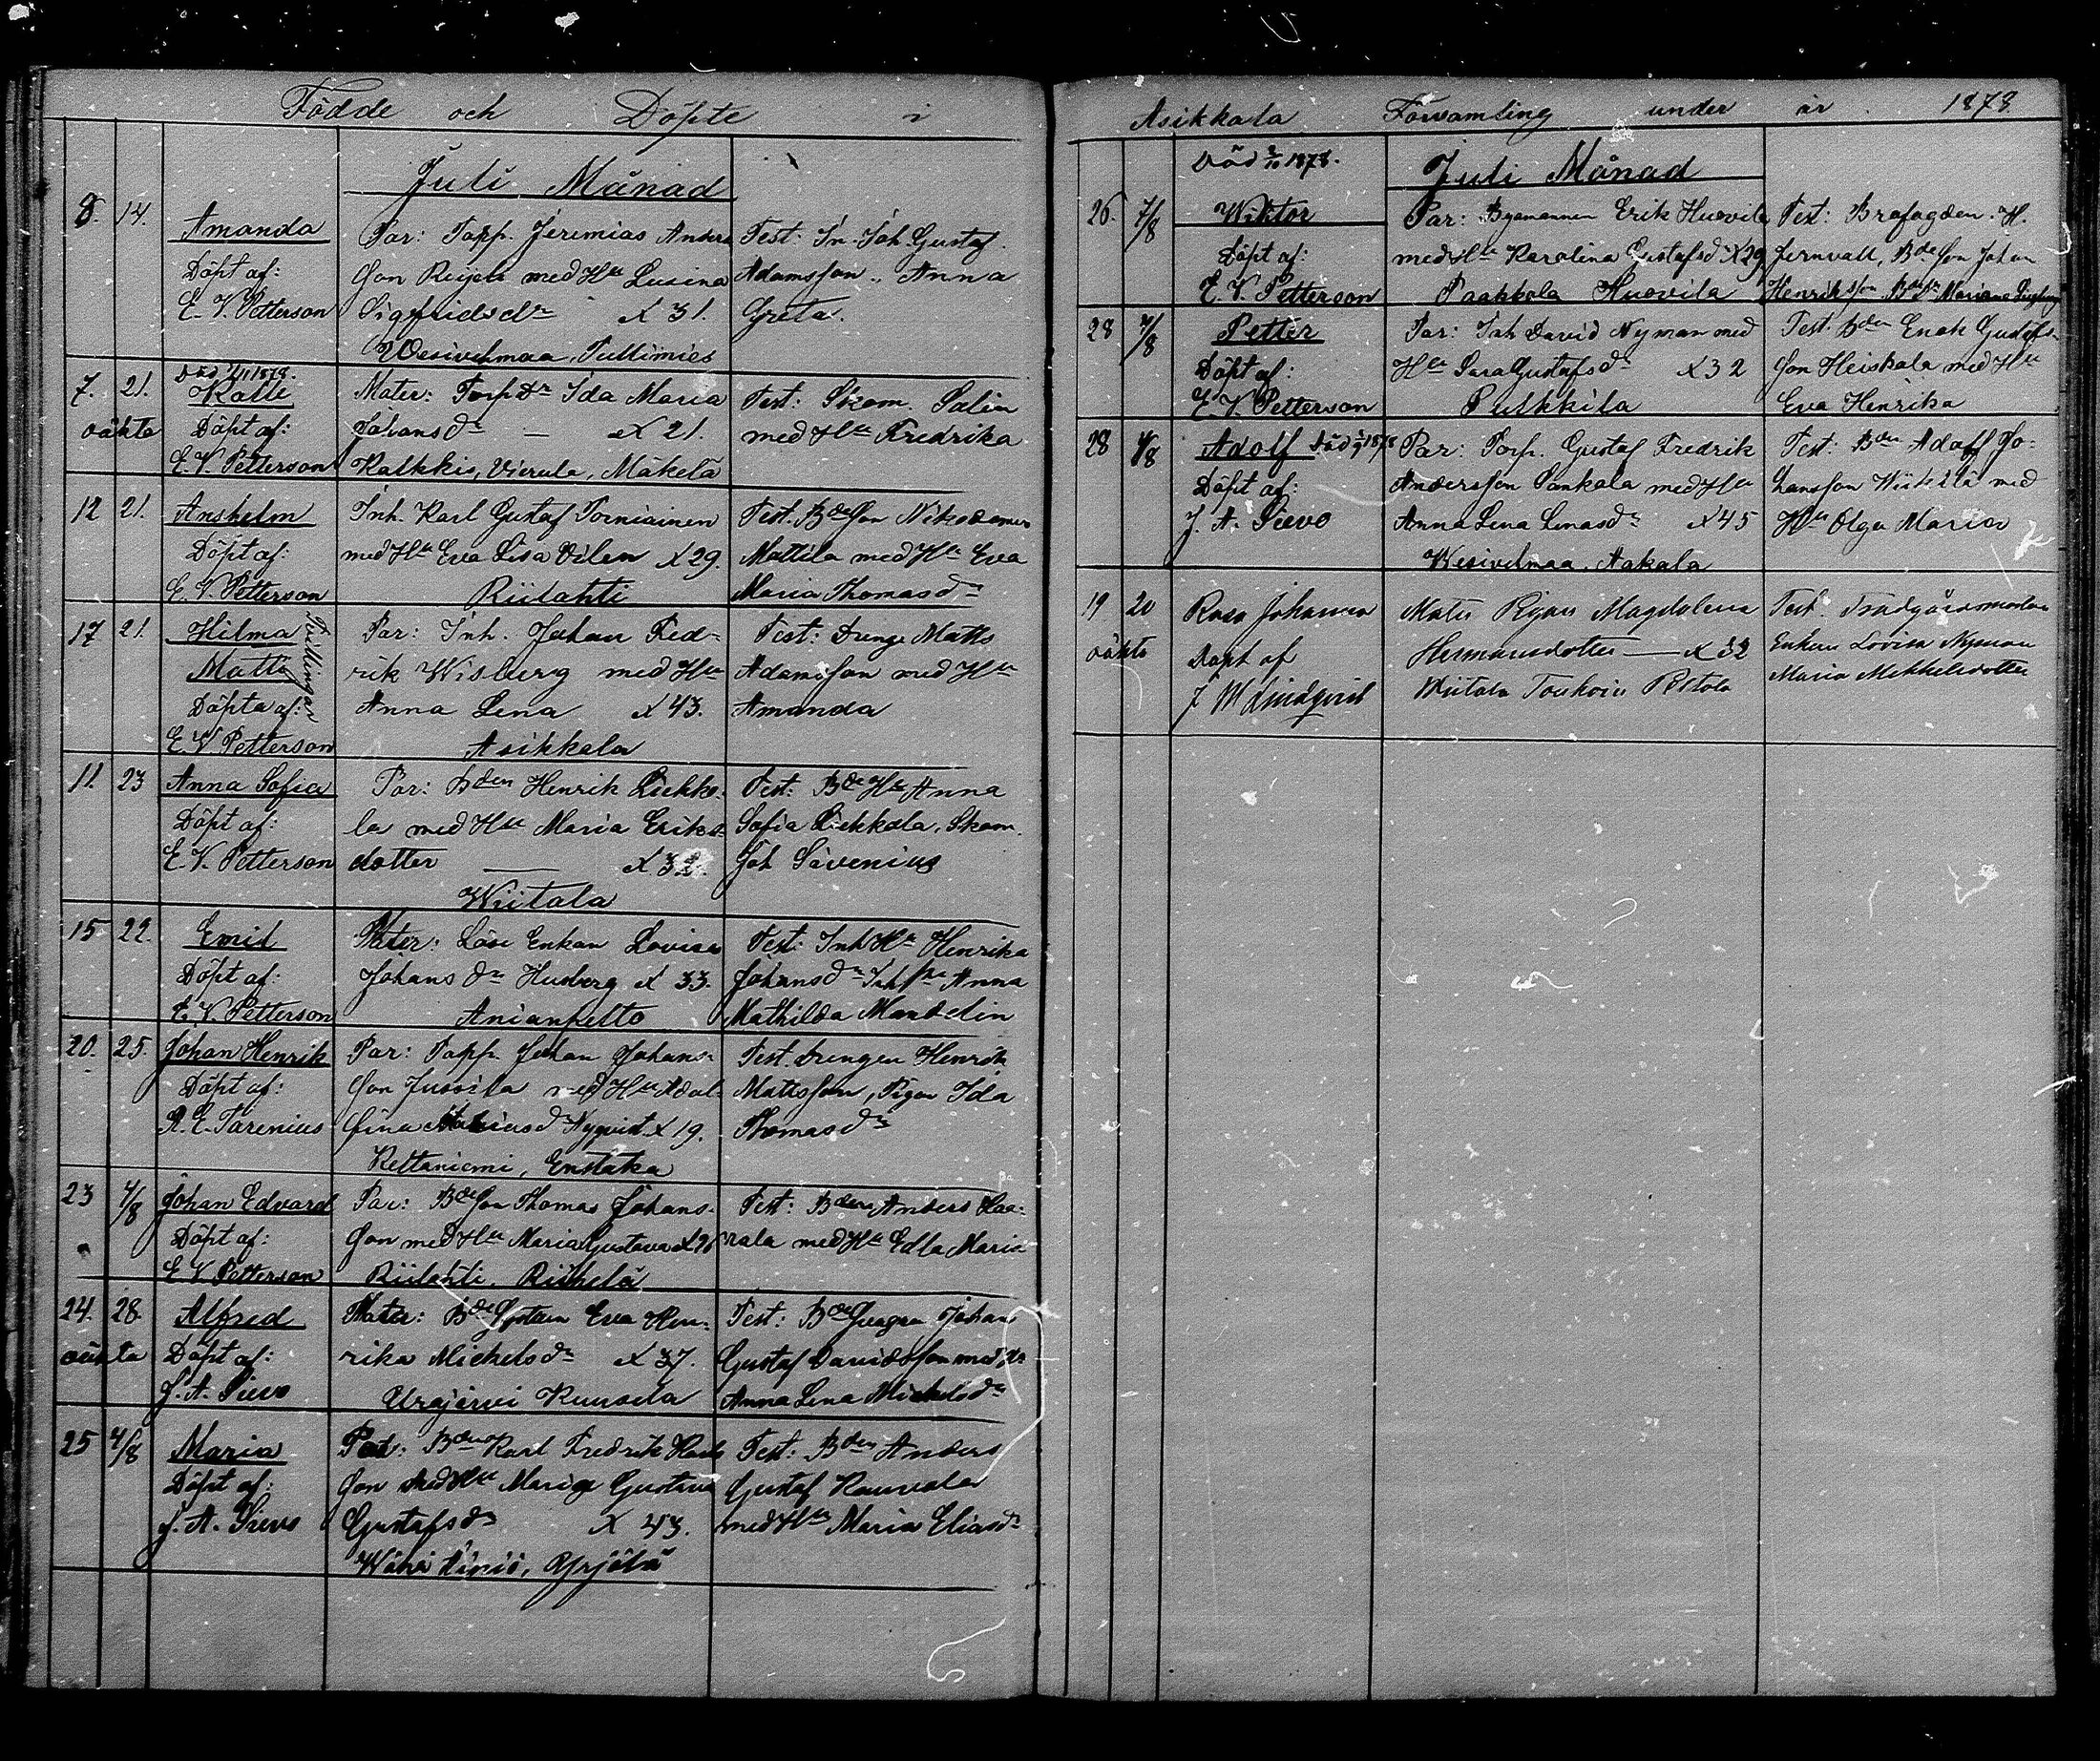 Födde och Döpte i
Juli Månad
8. 14. Amanda
Döpt af:
E. V. Petterson
Par: Torp. Jeremias Anders
son Reijola med Hu Lusina
Sigfridsdr Æ 31.
Wesivehmaa, Tullimies
Test: In. Joh. Gustaf
Adamsson, Anna
Greta.
7. 21. Död 1878.
oäkta Kalle
Döpt af:
E. V. Petterson
Mater: Torpdr Ida Maria
Johansdr — Æ 21.
Kalkkis, Vierula, Mäkelä
Test: Skom. Salin
med Hu Fredrika
12 21. Anshelm
Döpt af:
E. V. Petterson
Inh. Karl Gustaf Torniainen
med Hu Eva Lisa Vilen Æ 29.
Riilahti
Test. Bdeson Nikodemus
Mattila med Hu Eva
Maria Thomasdr
17 21. Hilma
Matti
Tvillingar
Döpta af:
E. V. Petterson
Par: Inh. Johan Fred-
rik Wisberg med Hu
Anna Lena Æ 43.
Asikkala
Test: Dreng Matts
Adamsson med Hu
Amanda
11. 23 Anna Sofia
Döpt af:
E. V. Petterson
Par: Bden Henrik Liekko-
la med Hu Maria Eriks-
dotter — Æ 32.
Wiitala
Test: Bde Hu Anna
Sofia Liekkola, Skom.
Joh Sävenius
15 22. Emil
Döpt af:
E. V. Petterson
Mater: Löse Enkan Lovisa
Johansdr Husberg Æ 33.
Anianpelto
Test: Inh Hu Henrika
Johansdr Inh Anna
Mathilda Mandelin
20. 25. Johan Henrik
Döpt af:
R. E. Tarenius
Par: Torp. Johan Johans-
son Jussila med Hu Adol-
fina Nyqvist Æ 19.
Keltaniemi, Enstaka
Test. Drengen Henrik
Mattsson, Pigan Ida
Thomasdr
23 4/8 Johan Edvard
Döpt af:
E. V. Petterson
Par: Bdeson Thomas Johans-
son med Hu Maria Gustava Æ 26
Riilahti, Riihelä
Test: Bden Anders Haa-
rala med Hu Edla Maria
24. 28. Alfred
oäkta Döpt af:
J. A. Sievo
Mater: Bde Eva Hen-
rika Mickelsdr Æ 37.
Urajärvi Kuusela
Test: Bde Johan
Gustaf Davidsson med Hu
Anna Lena Mickelsdr
25 4/8 Maria
Döpt af:
J. A. Sievo
Par: Bden Karl Fredrik Karls
son med Hu Maria Gustava
Gustafsdr Æ 43.
Wähä Äiniö, Yrjölä
Test: Bden Anders
Gustaf Kauvala
med Hu Maria Eliasdr
Asikkala Församling under år 1878.
Juli Månad
26. 7/8 Död 2/10 1878.
Wiktor
Döpt af:
E. V. Petterson
Par: Byamannen Erik Huovila
med Hu Karolina Gustafsd Æ 29
Paakkola Huovila
Test: Brofogden H.
Jernvall, Bdeson Johan
Henriksson
28 7/8 Petter
Döpt af:
E. V. Petterson
Par: Inh David Nyman med
Hu Sara Gustafsdr Æ 32
Pulkkila
Test. Bden Enok Gustafs-
son Heiskala med Hu
Eva Henrika
28 4/8 Adolf Död 1878
Döpt af:
J. A. Sievo
Par: Torp. Gustaf Fredrik
Andersson Sankala med Hu
Anna Lena Linasdr Æ 45
Wesivehmaa, Aakala
Test: Bden Adolf Jo-
hansson med
Hu Olga Maria
19 20 Rosa Johanna
oäkta Döpt af
J W Lindqvist
Mater Pigan Magdalena
Hermansdotter — Æ 32
Wiitala Toukoin Peltola
Test.
Enkan Lovisa Nyman
Maria Mikkelsdotter